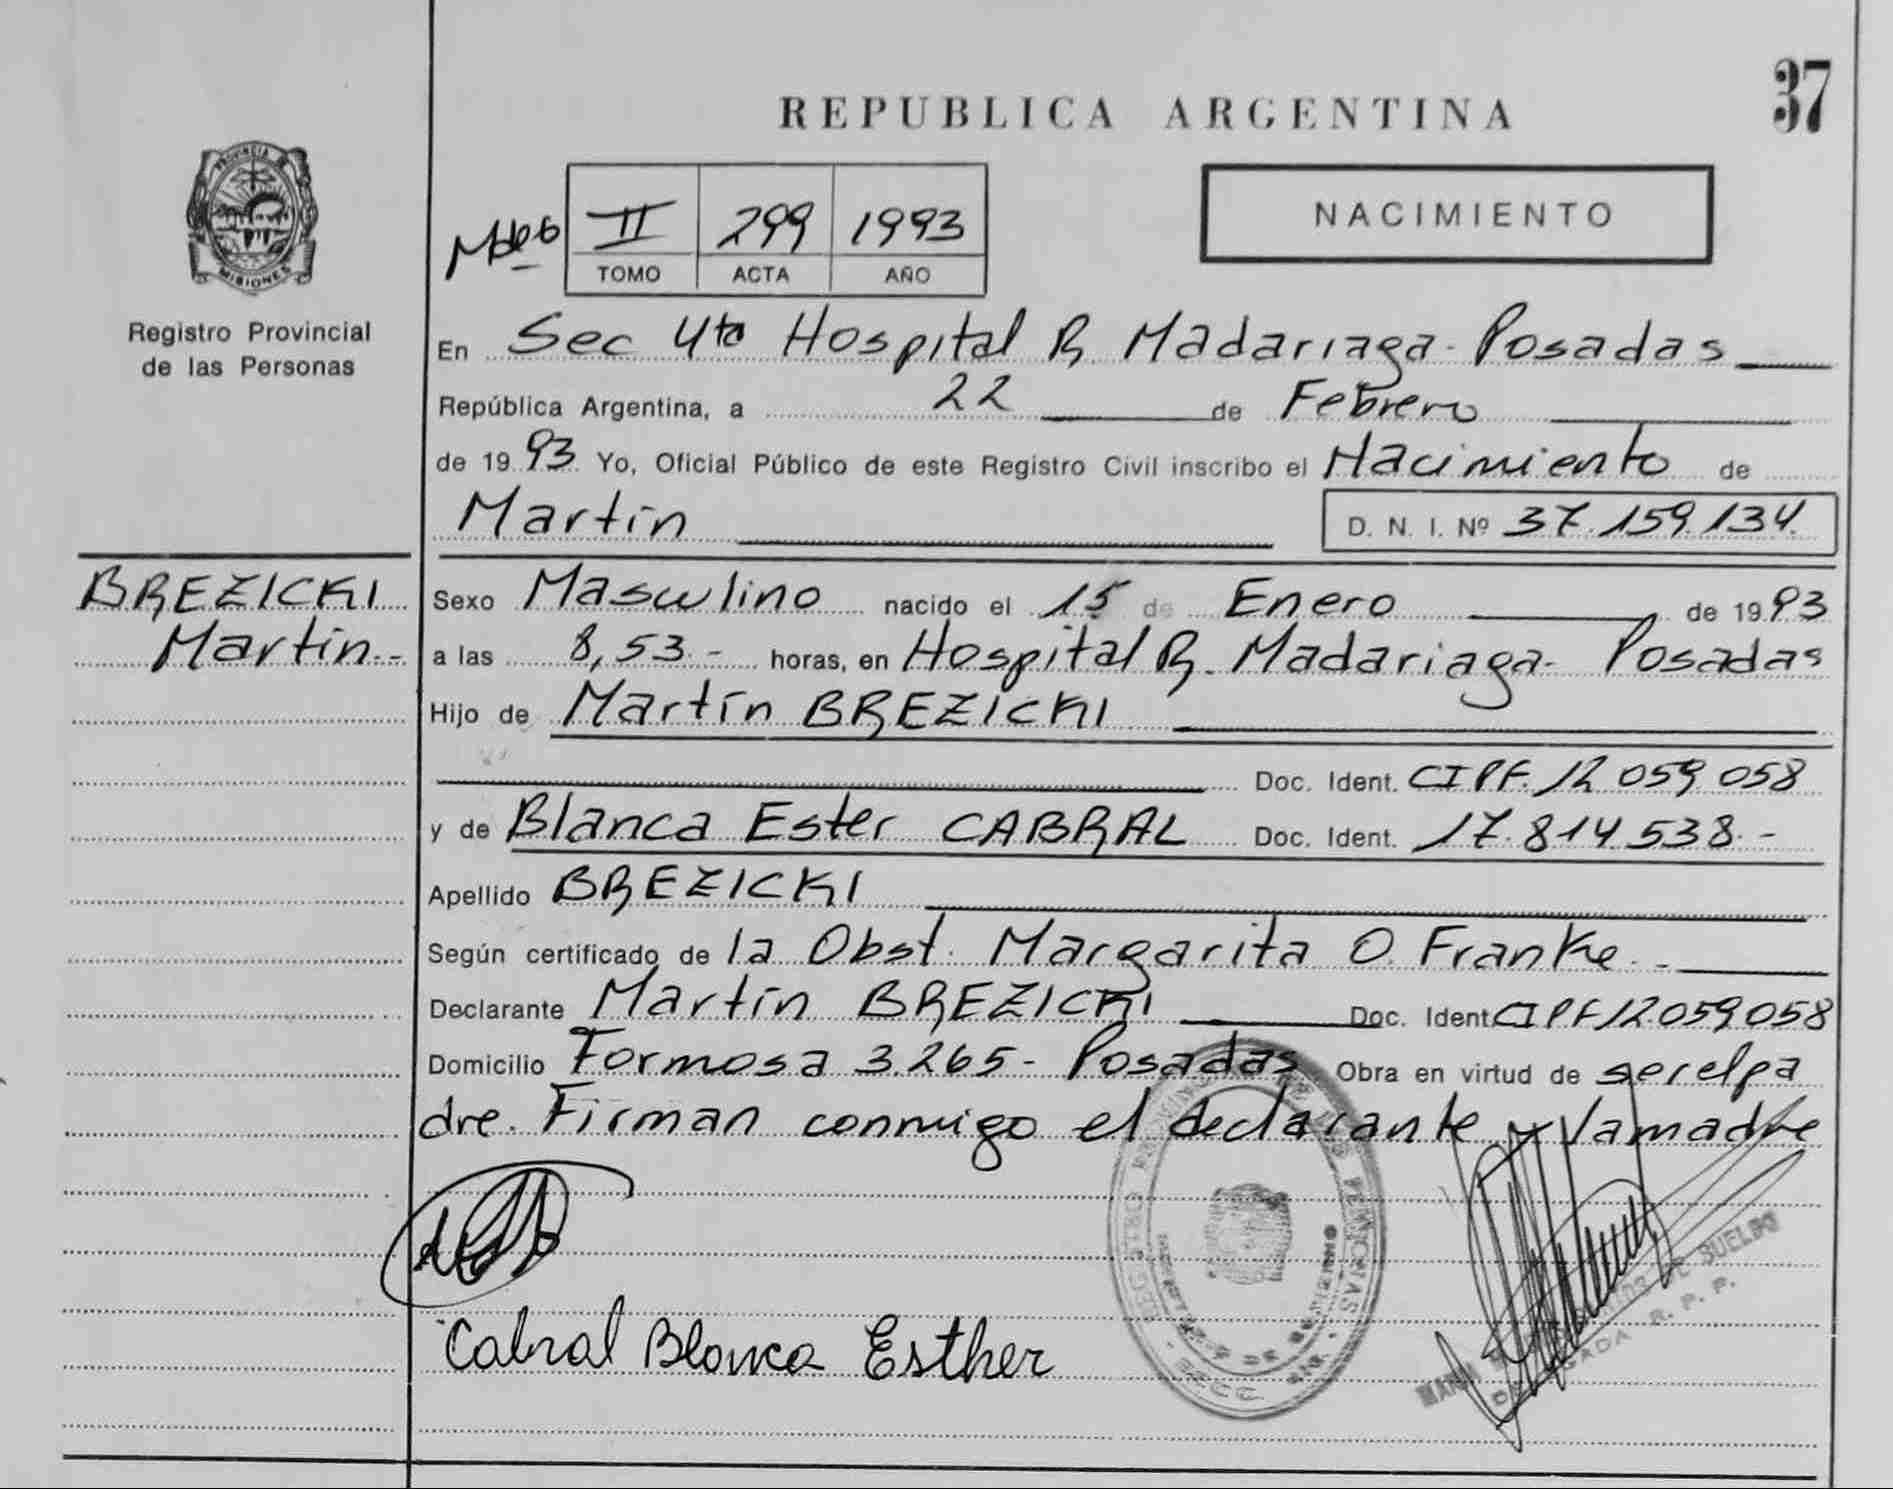 37
REPUBLICA ARGENTINA
PROVINCIA DE
MISIONES
Registro Provincial
de las Personas
II 299 1993
TOMO ACTA AÑO
NACIMIENTO
En Sec 4ta Hospital R. Madariaga - Posadas
República Argentina, a 22 de Febrero
de 1993 Yo, Oficial Público de este Registro Civil inscribo el Nacimiento de
Martín D. N. I. Nº 37.159.134.
BREZICKI
Martin.-
Sexo Masculino nacido el 15 de Enero de 1993
a las 8,53.- horas, en Hospital R. Madariaga - Posadas
Hijo de Martín BREZICKI
Doc. Ident. CIPF. 12 059 058
y de Blanca Ester CABRAL Doc. Ident. 17.814.538.-
Apellido BREZICKI
Según certificado de la Obst. Margarita O. Franke.-
Declarante Martín BREZICKI Doc. Ident. CIPF 12.059.058
Domicilio Formosa 3.265- Posadas Obra en virtud de ser el pa
dre. Firman conmigo el declarante y la madre
Cabral Blanca Esther
SUELDO
R. P. P.